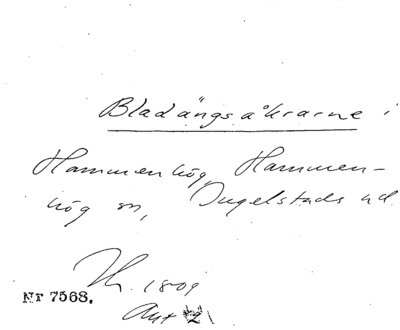 Bladängsåkrarne i
Hammenhög, Hammen-
hög sn, Ingelstads hd
1809
Nr 7568.
Akt 21